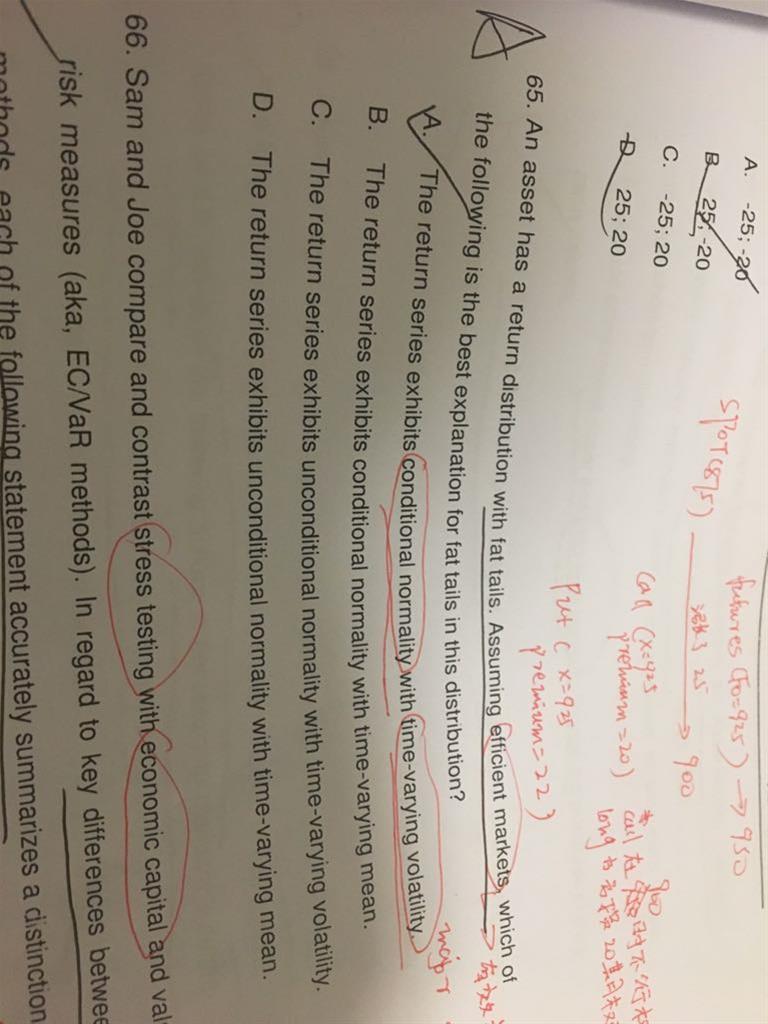 A. -25; -20
B 25; -20
C. -25; 20
D 25; 20
spot(875)
futures(F0=925) → 950
25
→ 900
call (x=925
premium=20)
put ( x=925
premium=22)
900
call
long
20
65. An asset has a return distribution with fat tails. Assuming efficient markets, which of
the following is the best explanation for fat tails in this distribution?
A. The return series exhibits conditional normality with time-varying volatility.
B. The return series exhibits conditional normality with time-varying mean.
C. The return series exhibits unconditional normality with time-varying volatility.
D. The return series exhibits unconditional normality with time-varying mean.
66. Sam and Joe compare and contrast stress testing with economic capital and
risk measures (aka, EC/VaR methods). In regard to key differences
methods, each of the following statement accurately summarizes a distinction